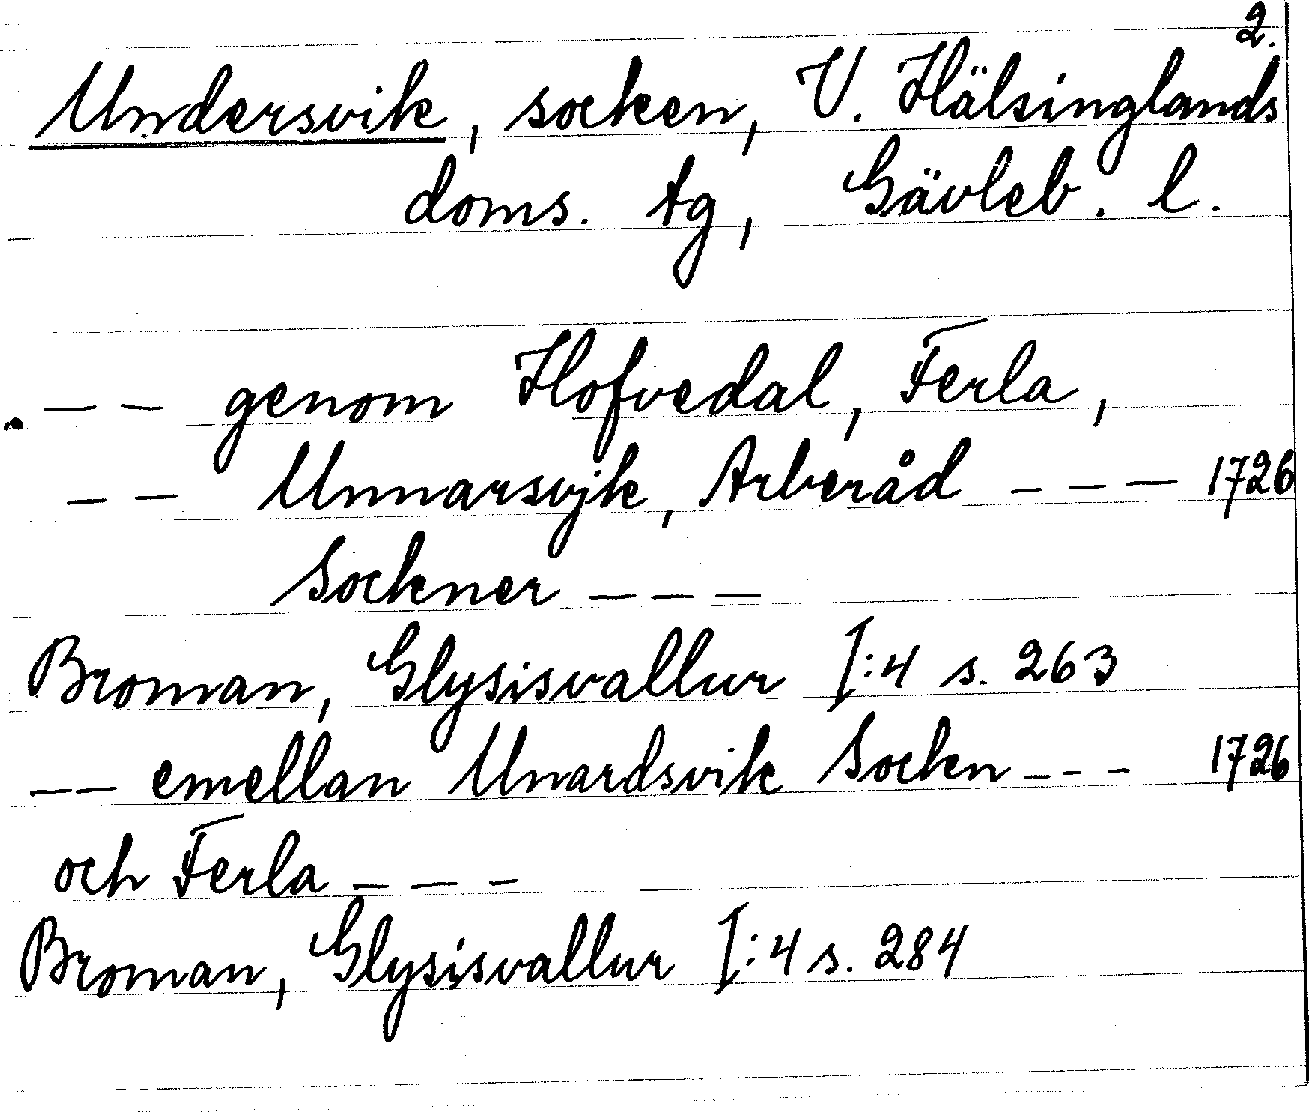 2.
Undersvik, socken, V. Hälsinglands
doms. tg, Gävleb. l.
— — genom Hofvedal, Ferla,
— — Unnarsvjk, Arberåd — — — 1726
Sockner — — —
Broman, Glysisvallur I:4 s. 263
— — emellan Unardsvik Sockn - - - 1726
och Ferla — — —
Broman, Glysisvallur I:4 s. 284